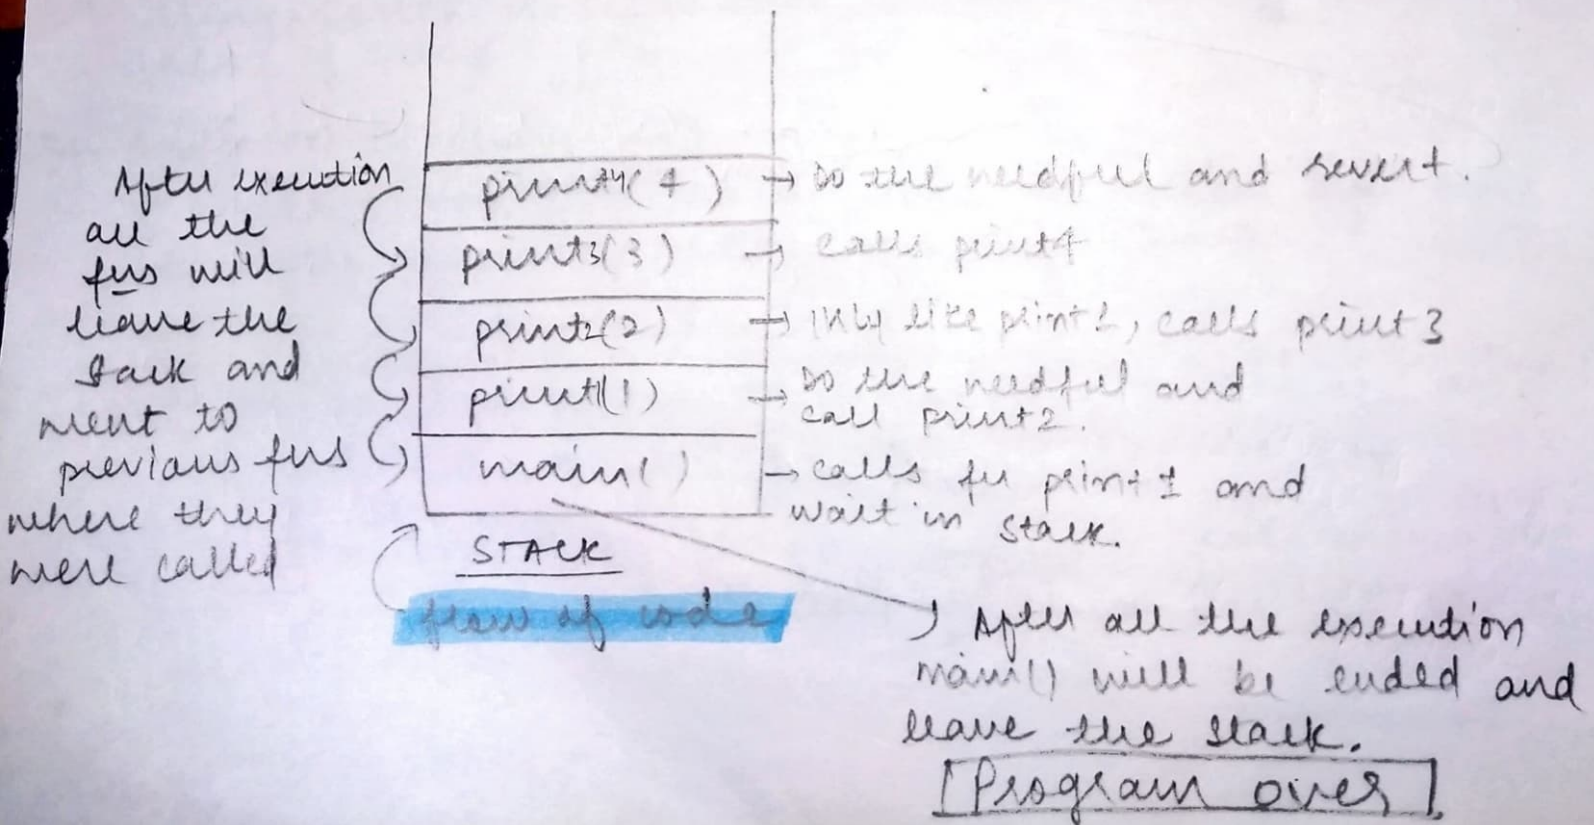 After execution
all the
fns will
leave the
stack and
went to
previous fns
where they
were called
print4(4)
→ Do the needful and revert.
print3(3)
→ calls print4
print2(2)
→ like print1, calls print3
print1(1)
→ Do the needful and
call print2.
main()
→ calls fn print1 and
wait in stack.
STACK
flow of code
After all the execution
main() will be ended and
leave the stack.
[Program over].